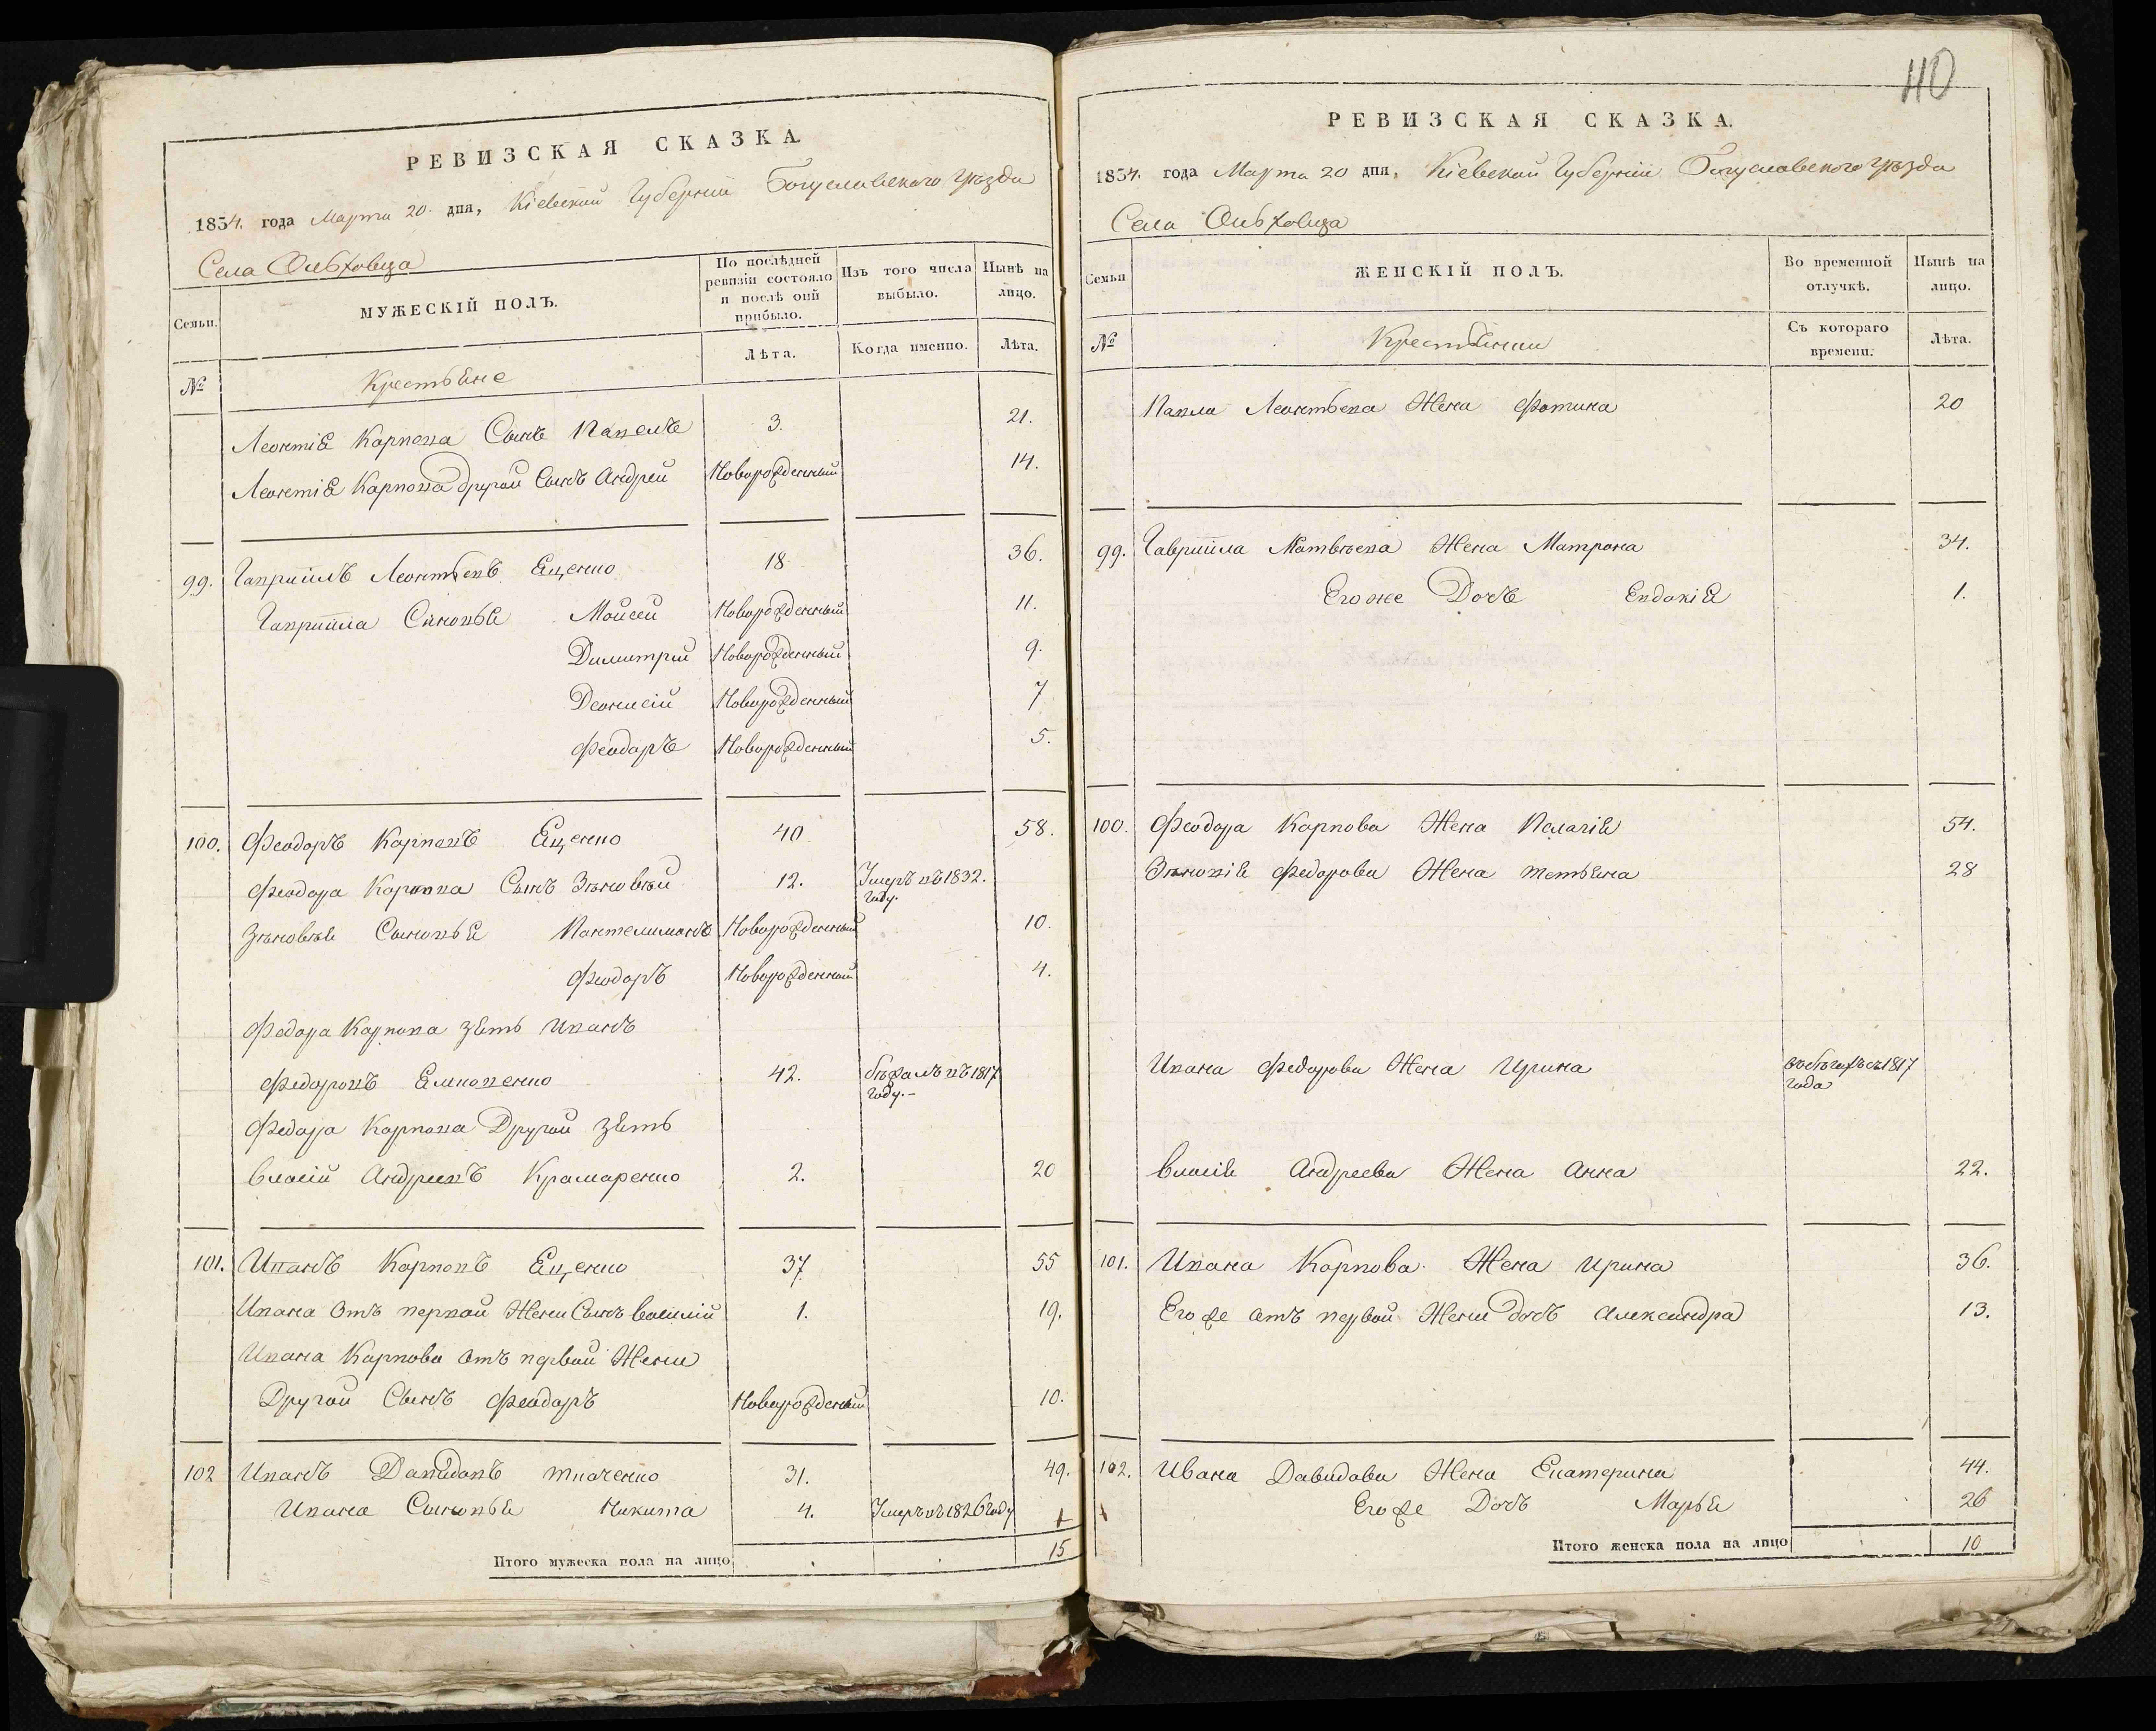 110
РЕВИЗСКАЯ СКАЗКА.
1834. года Марта 20. дня, Кіевской Губерніи Богуславскаго Уѣзда
Села Ольховца
Семьи.
МУЖЕСКІЙ ПОЛЪ.
По послѣдней ревизіи состояло и послѣ оній прибыло.
Изъ того числа выбыло.
Нынѣ на лицо.
№
Крестьяне
Лѣта.
Когда именно.
Лѣта.
Леонтія Карпова Сынъ Павелъ 3. 21.
Леонтія Карпова другой Сынъ Андрей Новорожденный 14.
99. Гавріилъ Леонтьевъ Ещенко 18 36.
Гавріила Сыновья Моисей Новорожденный 11.
Димитрій Новорожденный 9.
Деонисій Новорожденный 7
Феодоръ Новорожденный 5.
100. Феодоръ Карповъ Ещенко 40 58.
Феодора Карпова Сынъ Зѣновѣй 12. Умеръ въ 1832. году.
Зѣновѣя Сыновья Пантелимонъ Новорожденный 10.
Феодоръ Новорожденный 4.
Федора Карпова зять Иванъ
Федоровъ 42. бѣжалъ въ 1817 году.-
Федора Карпова Другой зять
Власій Андреевъ Крамаренко 2. 20
101. Иванъ Карповъ Ещенко 37 55
Ивана отъ первой Жены Сынъ Василій 1. 19.
Ивана Карпова отъ первой Жены
Другой Сынъ Феодоръ Новорожденный 10.
102 Иванъ Давидовъ Ткаченко 31. 49.
Ивана Сыновья Никита 4. Умеръ въ 1826 году
Итого мужеска пола на лицо 15
РЕВИЗСКАЯ СКАЗКА.
1834. года Марта 20 дня, Кіевской Губерніи Богуславскаго Уѣзда
Села Ольховца
Семьи
ЖЕНСКІЙ ПОЛЪ.
Во временной отлучкѣ.
Нынѣ на лицо.
№
Крестьянки
Съ котораго времени.
Лѣта.
Павла Леонтьева Жена Фотина 20
99. Гавріила Матвѣева Жена Матрона 34.
Его же Дочь Евдокія 1.
100. Феодора Карпова Жена Пелагія 54.
Зѣновія Федорова Жена Тетьяна 28
Ивана Федорова Жена Ирина въ бѣгахъ съ 1817 года
Власія Андреева Жена Анна 22.
101. Ивана Карпова Жена Ирина 36.
Его же отъ первой Жены дочь Александра 13.
102. Ивана Давидова Жена Екатерина 44.
Его же Дочь Марья 26
Итого женска пола на лицо 10